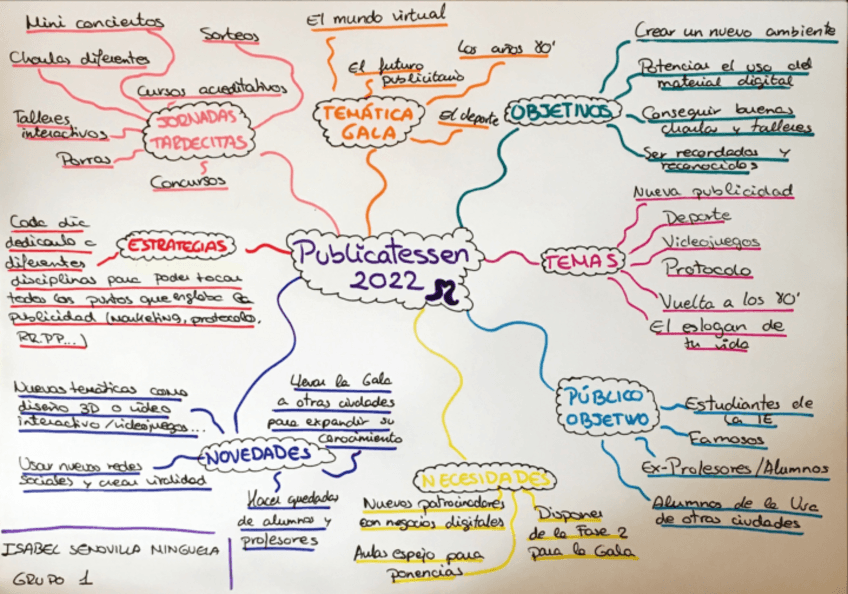 Publicatessen
2022
JORNADAS
TARDECITAS
Mini conciertos
Charlas diferentes
Talleres
interactivos
Porras
Concursos
Cursos acreditativos
Sorteos
TEMÁTICA
GALA
El mundo virtual
El futuro
publicitario
Los años 80'
El deporte
OBJETIVOS
Crear un nuevo ambiente
Potenciar el uso del
material digital
Conseguir buenas
charlas y talleres
Ser recordados y
reconocidos
TEMAS
Nueva publicidad
Deporte
Videojuegos
Protocolo
Vuelta a los 80'
El eslogan de
tu vida
PÚBLICO
OBJETIVO
Estudiantes de
la IE
Famosos
Ex-Profesores/Alumnos
Alumnos de la Uva
de otras ciudades
NECESIDADES
Nuevos patrocinadores
con negocios digitales
Aulas espejo para
ponencias
Disponer
de la Fase 2
para la Gala
NOVEDADES
Nuevas temáticas como
diseño 3D o vídeo
interactivo/videojuegos...
Usar nuevas redes
sociales y crear viralidad
Hacer quedadas
de alumnos y
profesores
Llevar la Gala
a otras ciudades
para expandir su
conocimiento
ESTRATEGIAS
Cada día
dedicarlo a
diferentes
disciplinas para poder tocar
todos los puntos que engloba la
publicidad (marketing, protocolo,
RR.PP...)
ISABEL SENOVILLA MINGUELA
GRUPO 1